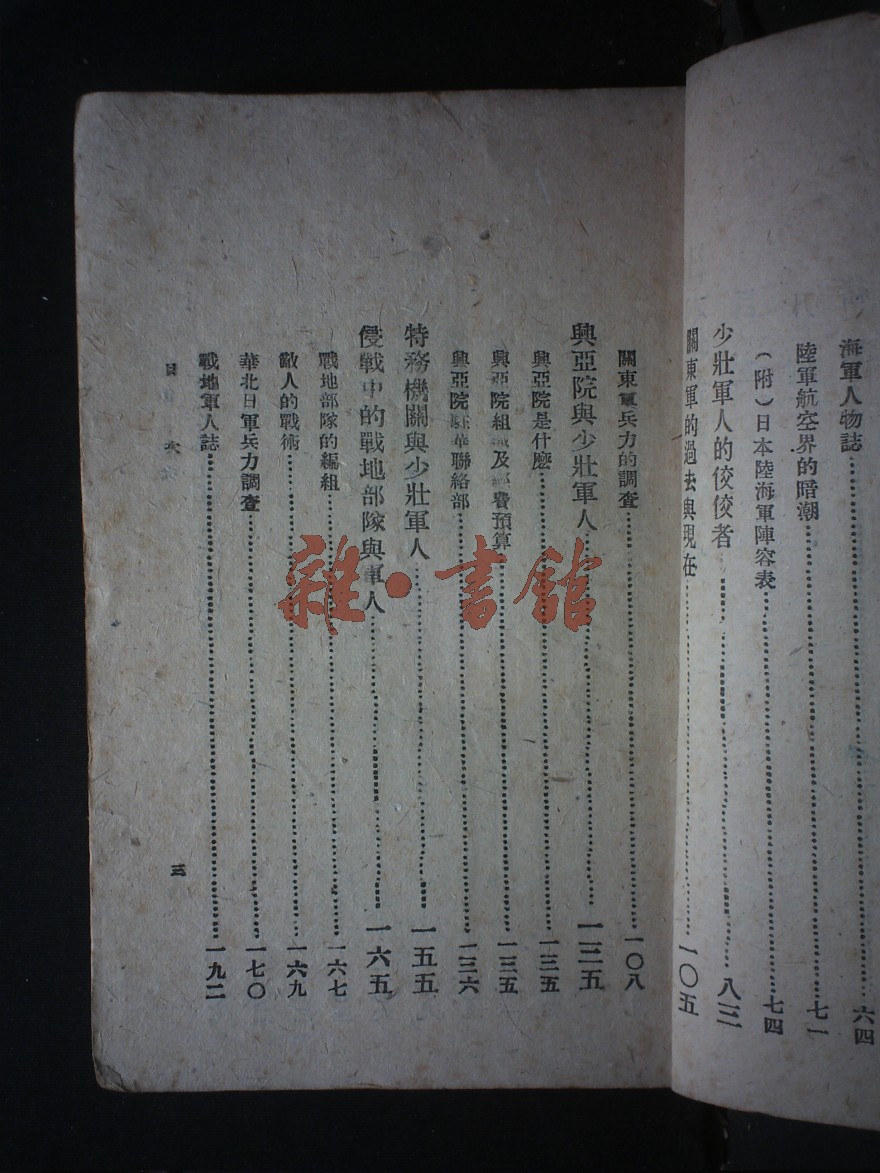 海軍人物誌 六四
陸軍航空界的暗潮 七一
（附）日本陸海軍陣容表 七四
少壯軍人的佼佼者 八三
關東軍的過去與現在 一〇五
關東軍兵力的調查 一〇八
興亞院與少壯軍人 一三五
興亞院是什麼 一三五
興亞院組織及經費預算 一三五
興亞院駐華聯絡部 一三六
特務機關與少壯軍人 一五五
侵戰中的戰地部隊與軍人 一六五
戰地部隊的編組 一六七
敵人的戰術 一六九
華北日軍兵力調查 一七〇
戰地軍人誌 一九二
目 次
三
雜·書館